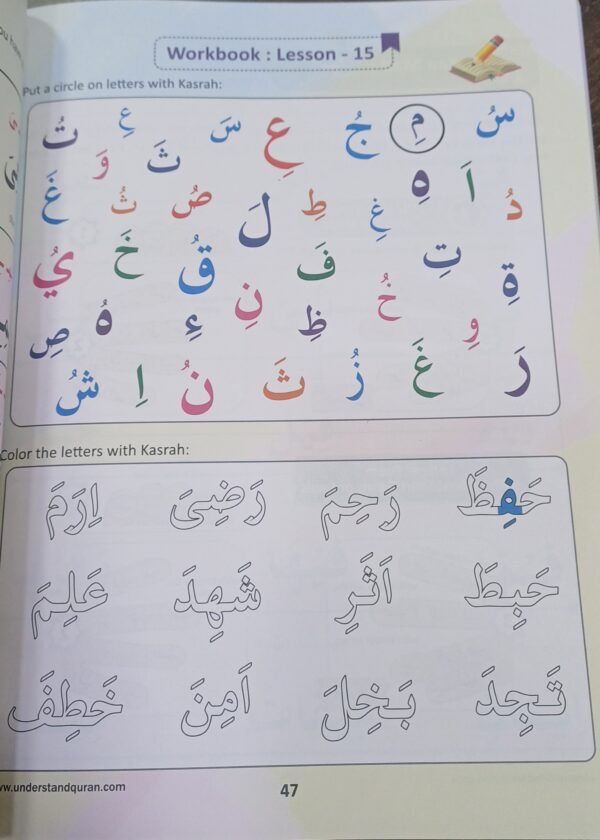 Workbook : Lesson - 15
Put a circle on letters with Kasrah:
سُ مِ جُ عِ سَ عِ تُ
ثَ وَ
دُ اَ هِ غِ طِ لَ صُ ثُ غَ
ةِ تِ فَ قُ خَ يُ
وِ خُ ظِ نِ ءِ هُ صِ
رَ غَ زُ ثَ نُ اِ شُ
Color the letters with Kasrah:
حَفِظَ رَحِمَ رَضِىَ اِرَمَ
حَبِطَ اَثَرِ شَهِدَ عَلِمَ
تَجِدَ بَخِلَ اَمِنَ خَطِفَ
w.understandquran.com
47